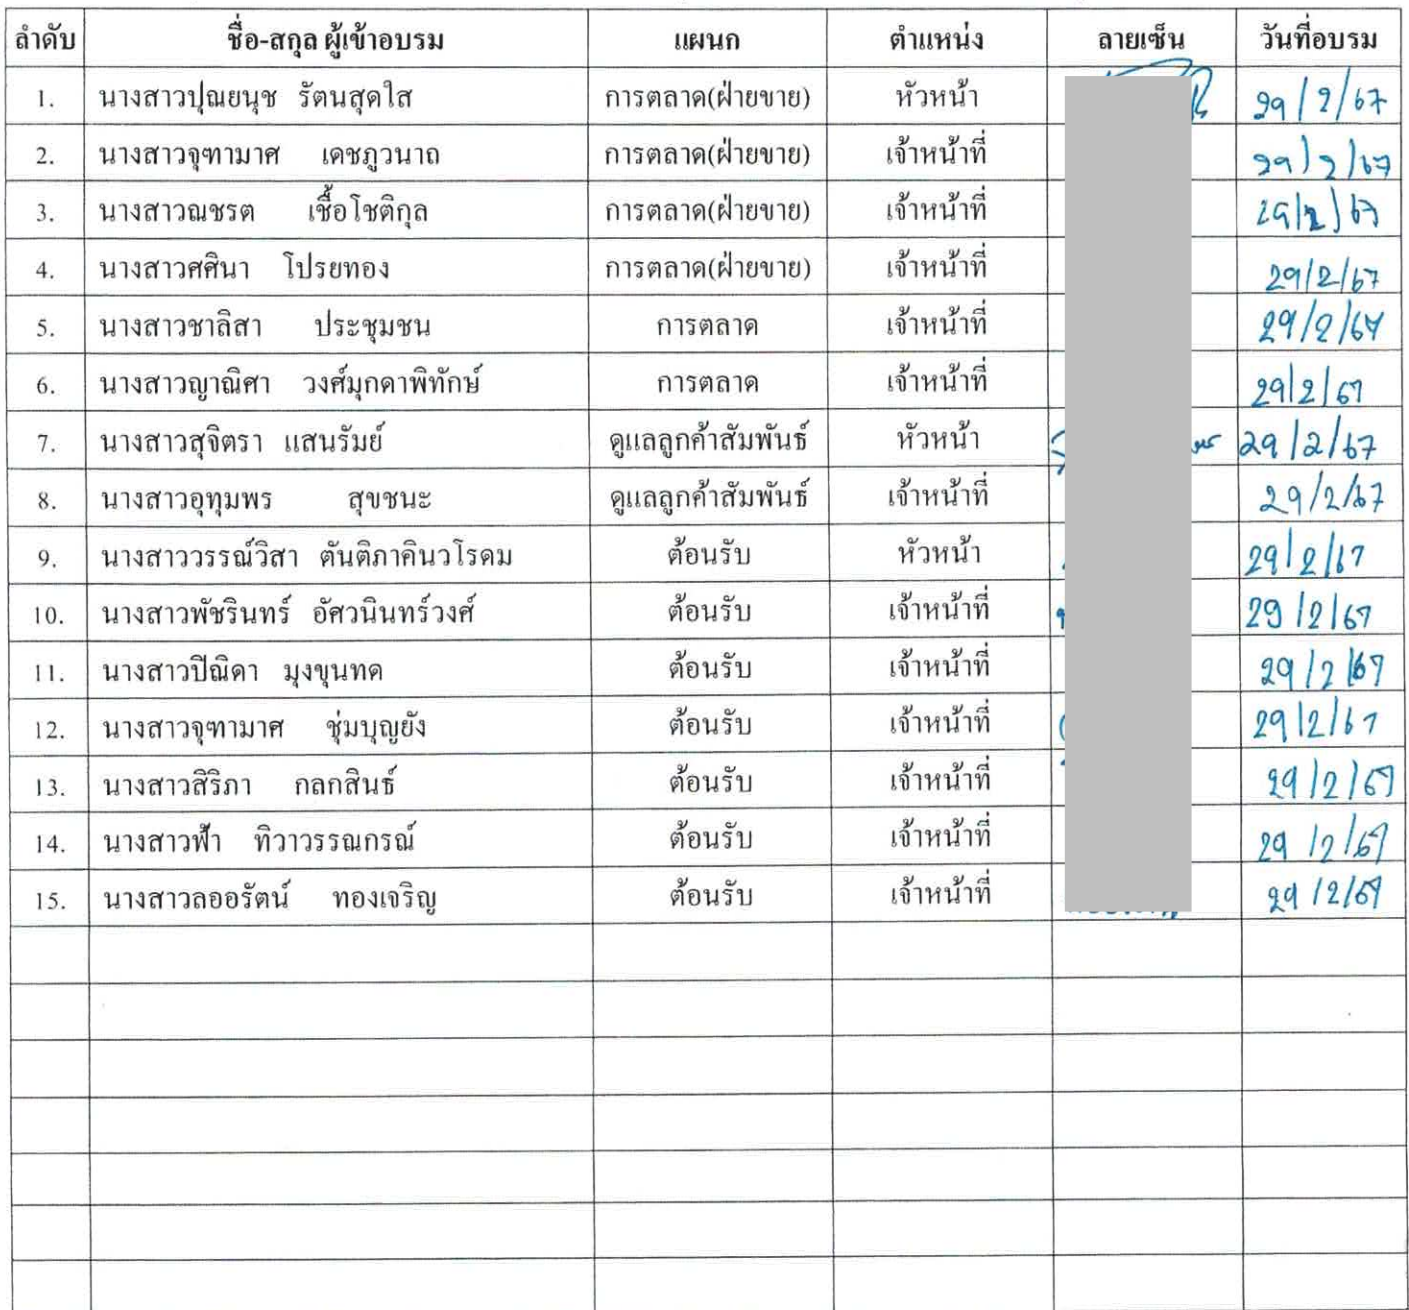 ลำดับ ชื่อ-สกุล ผู้เข้าอบรม แผนก ตำแหน่ง ลายเซ็น วันที่อบรม
1. นางสาวปุณยนุช รัตนสุดใส การตลาด(ฝ่ายขาย) หัวหน้า 29/2/67
2. นางสาวจุฑามาศ เดชภูวนาถ การตลาด(ฝ่ายขาย) เจ้าหน้าที่ 29/2/67
3. นางสาวณชรต เชื้อโชติกุล การตลาด(ฝ่ายขาย) เจ้าหน้าที่ 29/2/67
4. นางสาวศศินา โปรยทอง การตลาด(ฝ่ายขาย) เจ้าหน้าที่ 29/2/67
5. นางสาวชาลิสา ประชุมชน การตลาด เจ้าหน้าที่ 29/2/67
6. นางสาวญาณิศา วงศ์มุกดาพิทักษ์ การตลาด เจ้าหน้าที่ 29/2/67
7. นางสาวสุจิตรา แสนรัมย์ ดูแลลูกค้าสัมพันธ์ หัวหน้า 29/2/67
8. นางสาวอุทุมพร สุขชนะ ดูแลลูกค้าสัมพันธ์ เจ้าหน้าที่ 29/2/67
9. นางสาววรรณ์วิสา ตันติภาคินวโรดม ต้อนรับ หัวหน้า 29/2/67
10. นางสาวพัชรินทร์ อัศวนินทร์วงศ์ ต้อนรับ เจ้าหน้าที่ 29/2/67
11. นางสาวปีณิดา มุงขุนทด ต้อนรับ เจ้าหน้าที่ 29/2/67
12. นางสาวจุฑามาศ ชุ่มบุญยัง ต้อนรับ เจ้าหน้าที่ 29/2/67
13. นางสาวสิริภา กลกสินธ์ ต้อนรับ เจ้าหน้าที่ 29/2/67
14. นางสาวฟ้า ทิวาวรรณกรณ์ ต้อนรับ เจ้าหน้าที่ 29/2/67
15. นางสาวลออรัตน์ ทองเจริญ ต้อนรับ เจ้าหน้าที่ 29/2/67